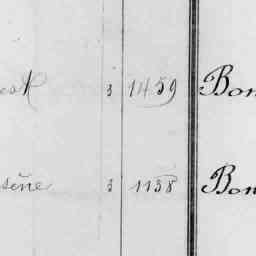 3 1459 Bon
sène 3 1138 Bon